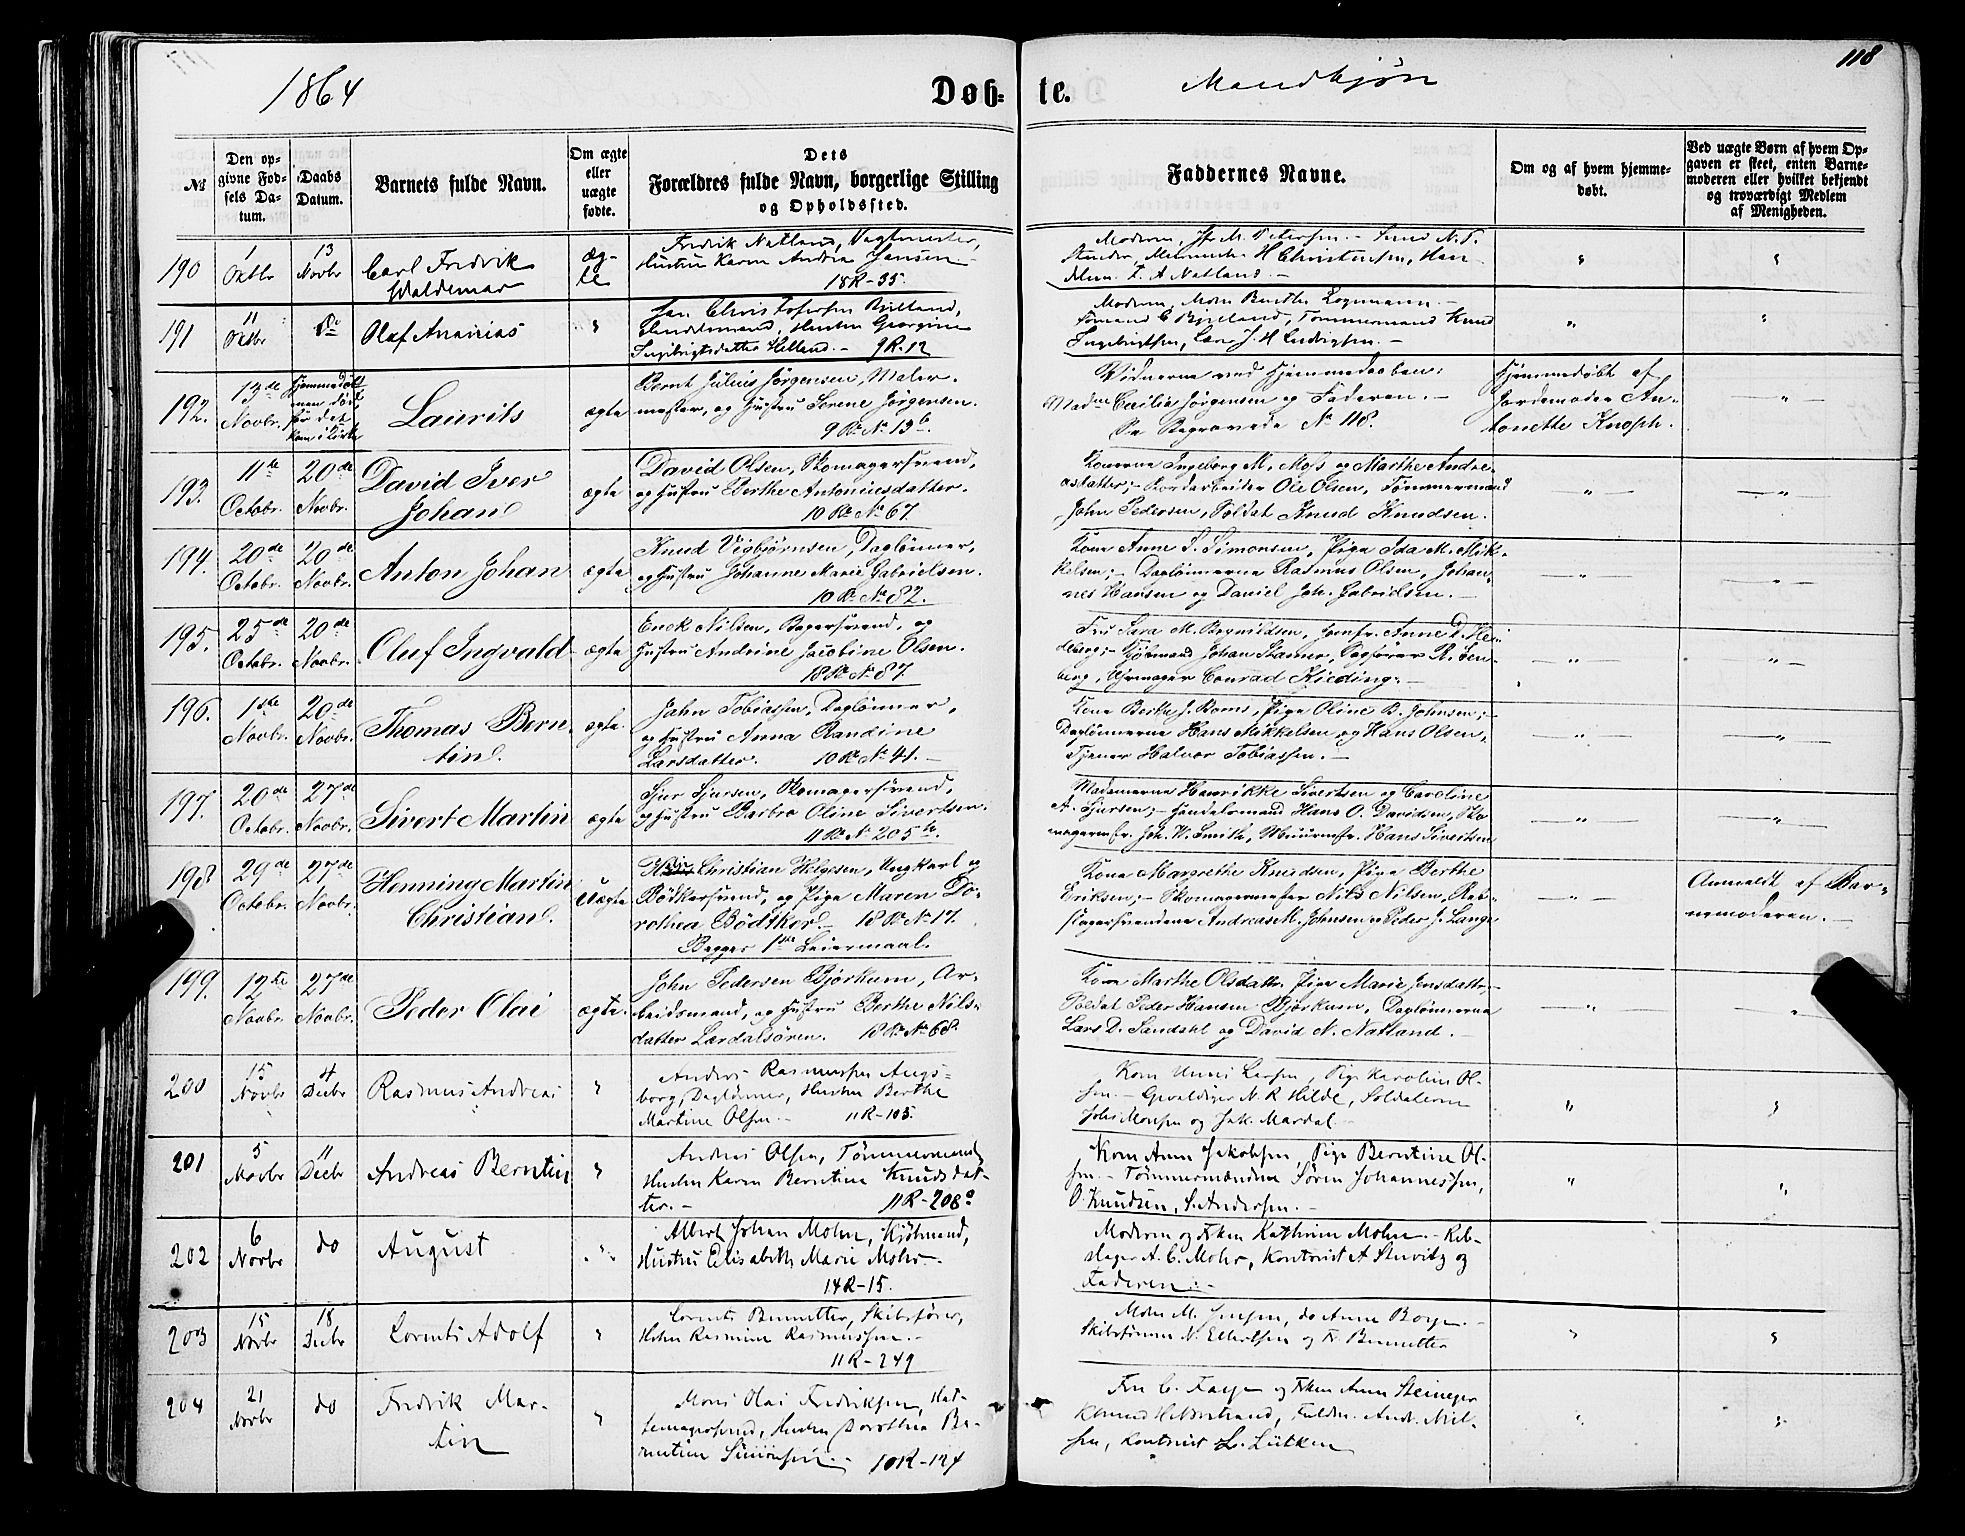 118
1864
Døb-
te.
Mandkjøn
No
Den op-
givne Fød-
sels Da-
tum.
Daabs
Datum.
Barnets fulde Navn.
Om ægte
eller
uægte
fødte.
Dets
Forældres fulde Navn, borgerlige Stilling
og Opholdssted.
Faddernes Navne.
Om og af hvem hjemme-
døbt.
Ved uægte Børn af hvem Op-
gaven er skeet, enten Barne-
moderen eller hvilket bekjendt
og troværdigt Medlem
af Menigheden.
190
1
Oktbr
13
Novbr
Carl Fredrik
Waldemar
æg-
te
Fredrik Natland, Vagtmester,
Hustru Karen Andrea Jansen
18R-35.
Moderen,
H Christensen,
F. A Natland.
191
11
Oktbr
Do
Olaf Ananias
"
Christofersen Bjelland,
Hustru Georgine
Ingebrigtsdatter Helland. - 9R.12
Moderen, Mdm Berthe Lognmann.
Formand C Bjelland, Tømmermand Knud
Ingebrigtsen, J. H Ludvigsen.
192.
13de
Novbr.
Hjemmedøbt
men død
før det
kom i Kirke
Laurits
ægte
Bernt Julius Jörgensen, Maler-
mester, og Hustru Serene Jörgensen.
9 Rd. No 13b.
Vidnerne ved Hjemmedaaben:
Madme Cecilia Jörgensen og Faderen.
Se Begravede No 118.
Hjemmedöbt af
Jordemoder An-
tonette Knoph.
193.
11te
Octobr.
20de
Novbr.
David Iver
Johan
ægte
David Olsen, Skomagersvend,
og Hustru Berthe Antoniusdatter.
10 Rd. No 67.
Konerne Ingeborg M. Moss og Marthe Andre-
asdatter; Ole Olsen, Tømmermand
John Pedersen, Soldat Knud Knudsen.
194.
20de
Octobr.
20de
Novbr.
Anton Johan
ægte
Knud Vigbjörnsen, Daglönner,
og Hustru Johanne Marie Gabrielsen.
10 Rd. No 82.
Kone Anne S. Simonsen, Pige Ida M. Mik-
kelsen; Daglönnerne Rasmus Olsen, Johan-
nes Hansen og Daniel Joh. Gabrielsen.
195.
25de
Octobr.
20de
Novbr.
Oluf Ingvald
ægte
Enok Nilsen, Bagersvend, og
Hustru Andrine Jacobine Olsen.
18 Rd. No 87.
Fru Sara M. Brynildsen, Jomfr. Anne D. Hei-
berg; Kjöbmand Johan Stamer, Fogfører R. Isen-
berg, Uhrmager Conrad Kieding.
196.
1ste
Novbr.
20de
Novbr.
Thomas Bern-
tin.
ægte
John Tobiassen, Daglönner,
og Hustru Anna Randine
Larsdatter. 10 Rd. No 41.
Kone Berthe J. Boms, Pige Oline B. Johnsen;
Daglönnerne Hans Mikkelsen og Hans Olsen,
Tjener Halvor Tobiassen.
197.
20de
Octobr.
27de
Novbr.
Sivert Martin
ægte
Sjur Sjursen, Skomagersvend,
og Hustru Barbro Oline Sivertsen.
11 Rd. No 205b.
Madamerne Henrikke Sivertsen og Caroline
A. Sjursen; Handelsmand Hans O. Davidsen, Sko-
magermstr. Joh. W. Smith, Muurmstr. Hans Sivertsen
198.
29de
Octobr.
27de
Novbr.
Henning Martin
Christian.
Uægte
Christian Helgesen, Ungkarl og
Bödkersvend, og Pige Maren Do-
rothea Bödtker. 18 Rd. No 17.
Begges 1ste Leiermaal.
Kone Margrethe Knudsen, Pige Berthe
Eriksen; Skomagermester Nils Nilsen, Reb-
slagersvendene Andreas M. Johnsen og Peder J. Lange
Anmeldt af Bar-
nemoderen.
199.
12te
Novbr.
27de
Novbr.
Peder Olai
ægte.
John Pedersen Bjorkum, Ar-
beidsmand, og Hustru Berthe Nils-
datter Lærdalsören. 18 Rd. No 68.
Kone Marthe Olsdatter, Pige Marie Jensdatter;
Soldat Peder Hansen Bjorkum, Daglönnerne
Lars D. Sendahl og David N. Natland.
200
15
Novbr
4
Decbr
Rasmus Andreas
"
Anders Rasmussen Augs-
borg, Daglønner, Hustru Berthe
Martine Olsen. - 11R-105.
Kone Unni Larsen, Pige Karoline Ol-
sen. - Gevaldiger N. R Hilde, Soldaterne
Johs Monsen og Jak. Mardal.
201
5
Novbr
11
Decbr
Andreas Berntin
"
Andreas Olsen, Tømmermand,
Hustru Karen Berntine Knudsdat-
ter. - 11R-208a
Kone Anne Jakobsen, Pige Berntine Ol-
sen. - Tømmermændene Søren Johannessen,
O. Knudsen, S. Andersen.
202
6
Novbr
do
August
"
Albert Johan Mohn, Kjøbmand,
Hustru Elisabeth Marie Mohr.
14R-15.
Moderen og Frken Kathrine Mohn. - Reb-
slager A. C. Mohr, Kontorist A Skuvitz og
Faderen.
203
15
Novbr
18
Decbr
Lorents Adolf
"
Lorents Bennetter, Skibsfører,
Hustru Rasmine Rasmussen.
11R-249
Mdm M. Jensen, do Anne Borge.
Skibsførerne N. Ellertsen og Fr. Bennetter
204
21
Novbr
do
Fredrik Mar-
tin
"
Mons Olai Fredriksen, Hat-
temagersvend, Hustru Dorothea Be-
rentine Simonsen. 10R-124
Fru C. Faye og Frken Anne Steineger
Andr. Niel-
sen, Kontorist L. Lütken